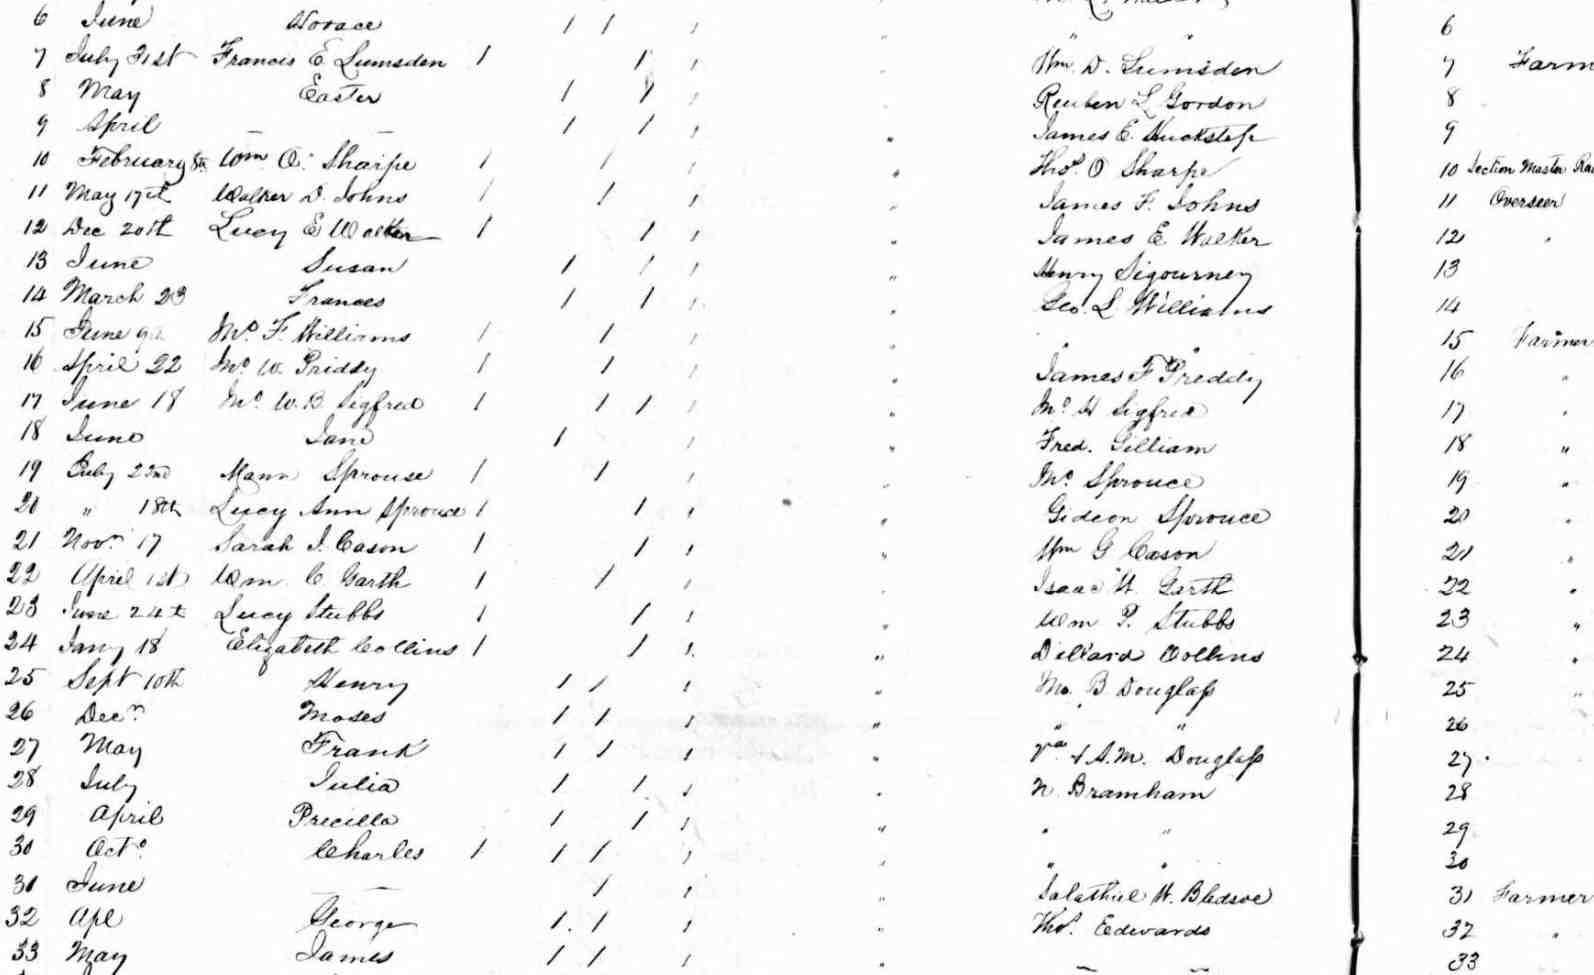 6 June Horace 1 1 1 " " 6
7 July 31st Francis E Lumsden 1 1 1 " Wm. D. Lumsden 7 Farm
8 May Easter 1 1 1 " Reuben L Gordon 8
9 April — — 1 1 1 " James E. Huckstep 9
10 February 8th Wm O. Sharpe 1 1 1 " Thos. O Sharpe 10 Section Master Rai
11 May 17th Walker D. Johns 1 1 1 " James F. Johns 11 Overseer
12 Dec 20th Lucy E Walker 1 1 1 " James E. Walker 12 "
13 June Susan 1 1 1 " Henry Sigourney 13
14 March 23 Frances 1 1 1 " Geo. L Williams 14
15 June Jno. F. Williams 1 1 1 " " " 15 Farmer
16 April 22 Jno W. Priddy 1 1 1 " James F Preddy 16 "
17 June 18 Jno. W. B Sigfred 1 1 1 1 " Jno H Sigfred 17 "
18 June Jane 1 1 " Fred. Gilliam 18 "
19 July 22nd Mann Sprouse 1 1 1 " Jno Sprouce 19 "
20 " 18th Lucy Ann Sprouce 1 1 1 " Gideon Sprouce 20 "
21 Novr 17 Sarah J. Cason 1 1 1 " Wm G Cason 21 "
22 April 1st Wm. C. Garth 1 1 1 " Isaac W. Garth 22 "
23 June 24th Lucy Stubbs 1 1 1 " Wm P. Stubbs 23 "
24 Jany 18 Elizabeth Collins 1 1 1 " Dillard Collins 24 "
25 Sept 10th Henry 1 1 1 " Jno. B Douglass 25 "
26 Decr Moses 1 1 1 " " " 26
27 May Frank 1 1 1 " & A.M. Douglass 27
28 July Julia 1 1 1 " N. Bramham 28
29 April Precilla 1 1 1 " " " 29
30 Octo. Charles 1 1 1 1 " " " 30
31 June — — 1 1 " Salathiel W. Bledsoe 31 Farmer
32 Apl George 1 1 1 " Thos. Edwards 32 "
33 May James 1 1 1 " — — 33